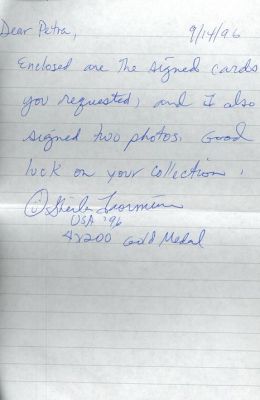 Dear Petra, 9/14/96
Enclosed are The signed cards
you requested, and I also
signed two photos. Good
luck on your collection.
Sheila Taormina
USA '96
4x200 Gold Medal